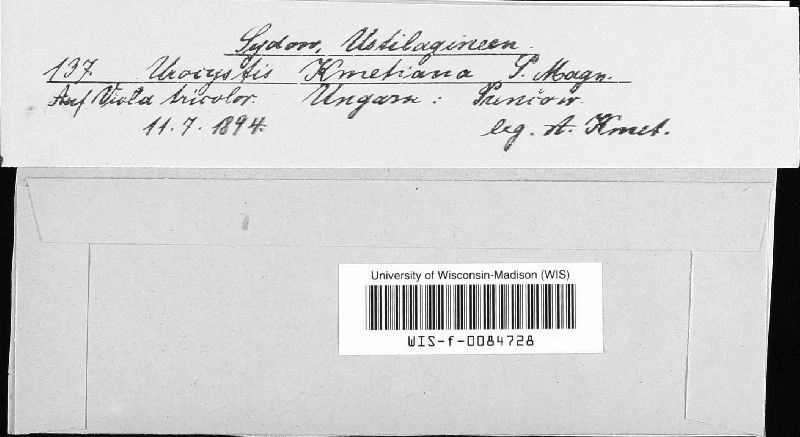 Sydow, Ustilagineen.
137. Urocystis Kmetiana P. Magn.
Auf Viola tricolor. Ungarn: Prenčow.
11. 7. 1894. leg. A. Kmet.
University of Wisconsin-Madison (WIS)
WIS-f-0084728